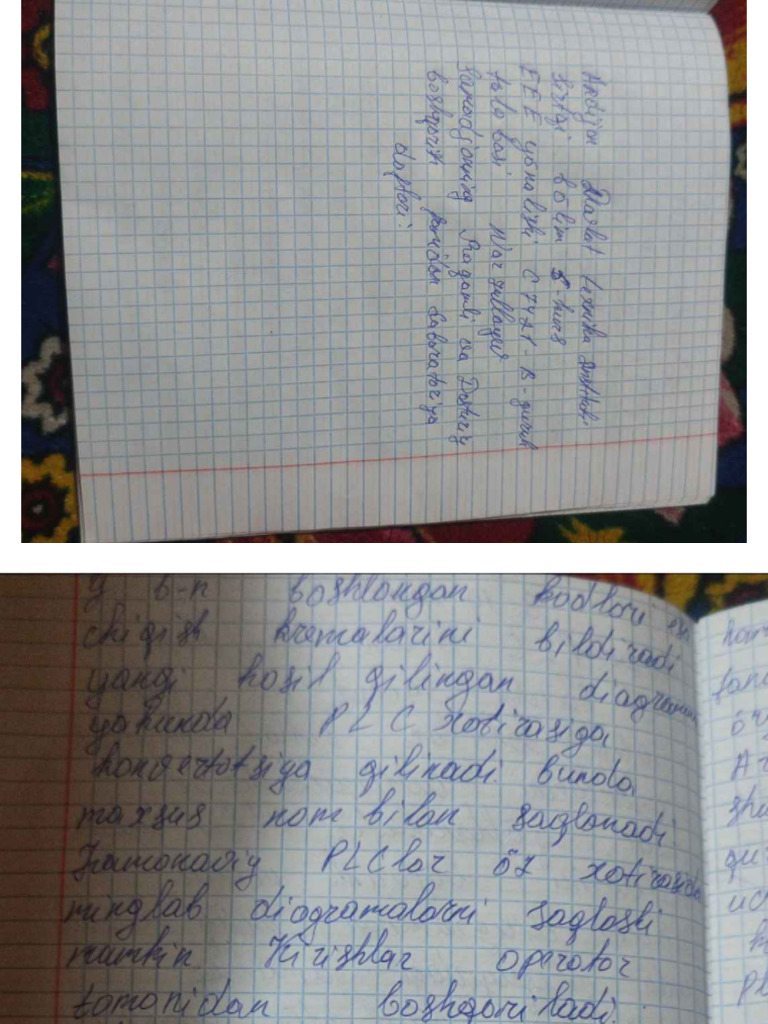 Andijon Davlat texnika instituti
sirtqi bo'lim 5-kurs
EEE yònalishi C 74 21-B-guruh
talabasi
Raqamli va Dasturiy
boshqarish fanidan Laboratoriya
daftari.
y b-n boshlangan kodlari esa
chiqish kremalarini bildiradi
yangi hosil qilingan diagramma
yakunda PLC xotirasiga
konvertatsiya qilinadi bunda
maxsus nom bilan saqlanadi
Zamonaviy PLClar öz xotirasida
minglab diogramalarni saqlashi
mumkin Kirishlar operator
tomonidan boshqoriladi.